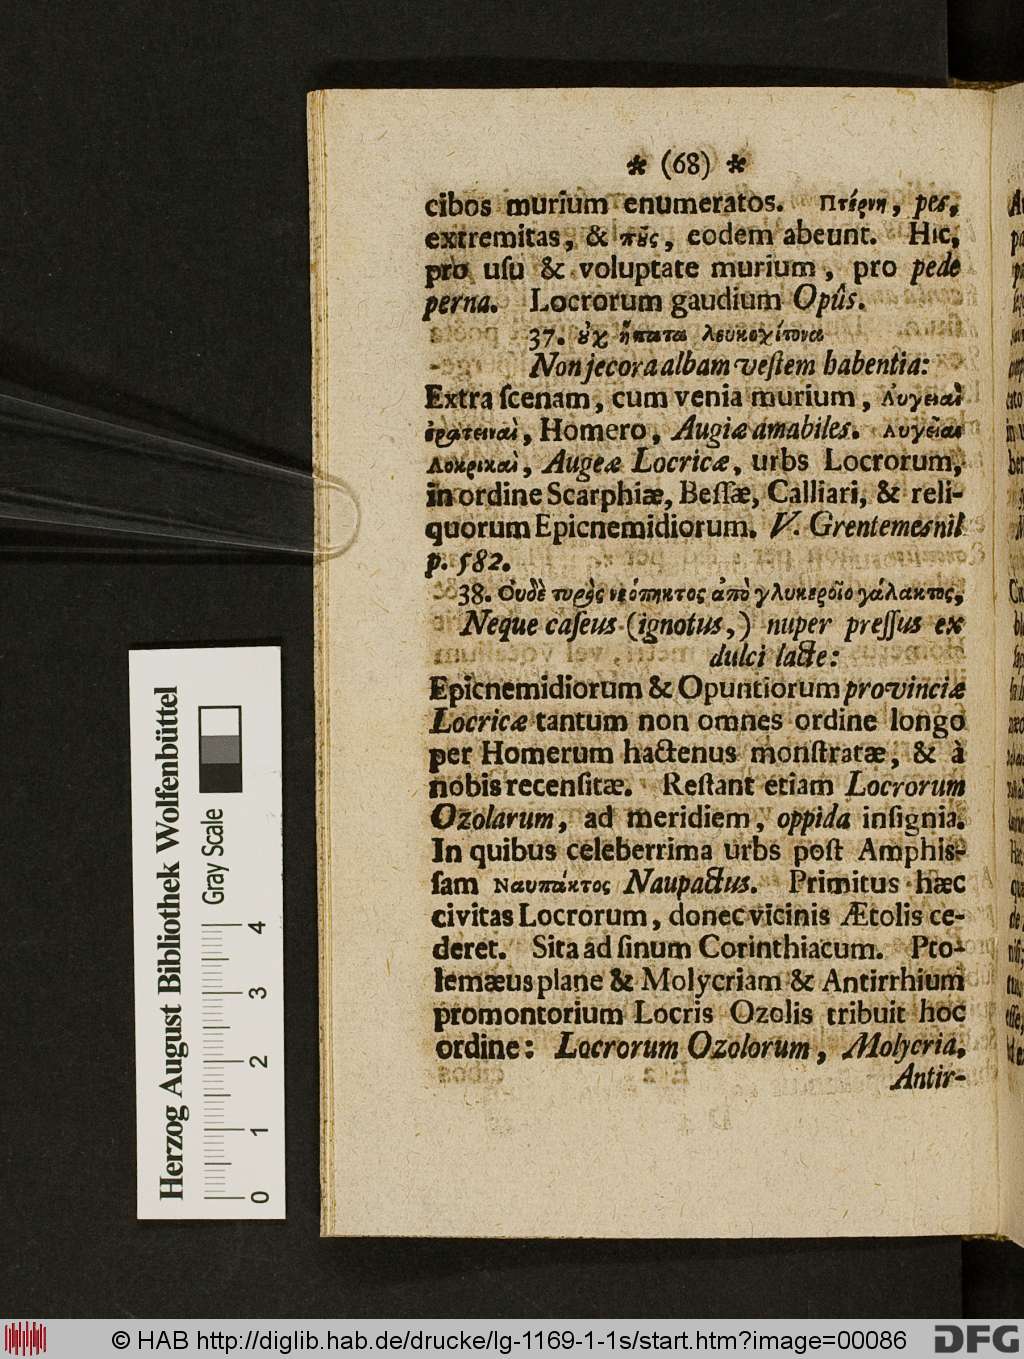 * (68) *
cibos murium enumeratos. Πτέρνη, pes,
extremitas, & πȣ̃ς, eodem abeunt. Hic,
pro uſu & voluptate murium, pro pede
perna. Locrorum gaudium Opûs.
37. ȣ̓χ ἥπατα λευκοχίτονα
Non jecora albam veſtem habentia:
Extra ſcenam, cum venia murium, Αυγειαὶ
ἐρατειναὶ, Homero, Augiæ amabiles. Αυγεῖαι
Λοκρικαὶ, Augeæ Locricæ, urbs Locrorum,
in ordine Scarphiæ, Beſſæ, Calliari, & reli-
quorum Epicnemidiorum. V. Grentemesnil
p. 582.
38. Ουδὲ τυρὸς νεόπηκτος ἀπὸ γλυκεροῖο γάλακτος,
Neque caſeus (ignotus,) nuper preſſus ex
dulci lacte:
Epicnemidiorum & Opuntiorum provinciæ
Locricæ tantum non omnes ordine longo
per Homerum hactenus monſtratæ, & à
nobis recenſitæ. Reſtant etiam Locrorum
Ozolarum, ad meridiem, oppida inſignia.
In quibus celeberrima urbs poſt Amphis-
ſam Ναυπάκτος Naupactus. Primitus hæc
civitas Locrorum, donec vicinis Ætolis ce-
deret. Sita ad ſinum Corinthiacum. Pto-
lemæus plane & Molycriam & Antirrhium
promontorium Locris Ozolis tribuit hoc
ordine: Locrorum Ozolorum, Molycria,
Antir-
Herzog August Bibliothek Wolfenbüttel
Gray Scale
0 1 2 3 4
© HAB http://diglib.hab.de/drucke/lg-1169-1-1s/start.htm?image=00086
DFG